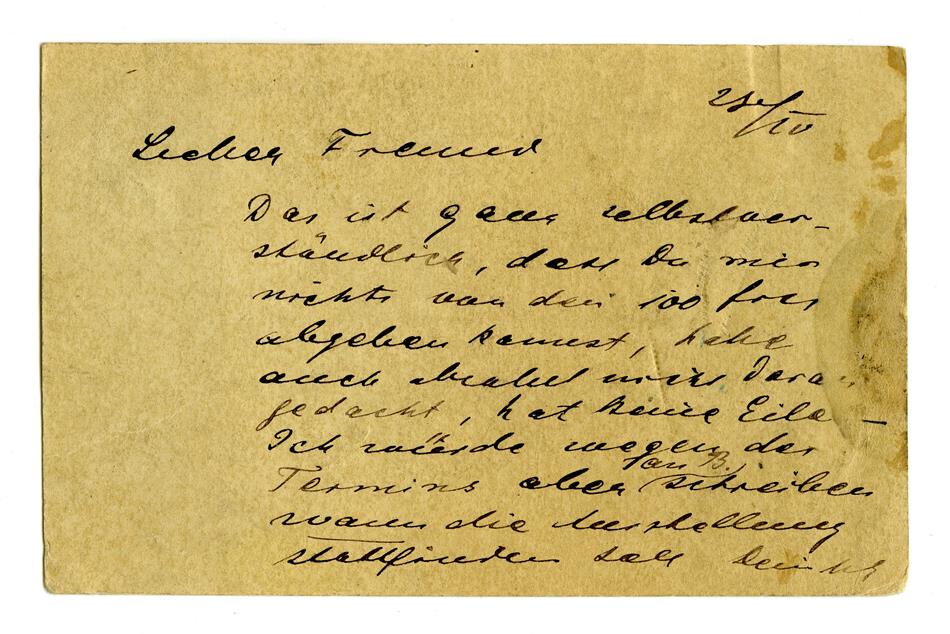 28/IV
Lieber Freund
Das ist ganz selbstver-
ständlich, dass Du mir
nichts von den 100 frcs
abgeben kannst, habe
auch absolut nicht daran
gedacht, hat keine Eile –
Ich würde wegen des
Termins aber (an B.) schreiben
wann die Ausstellung
stattfinden soll Dein